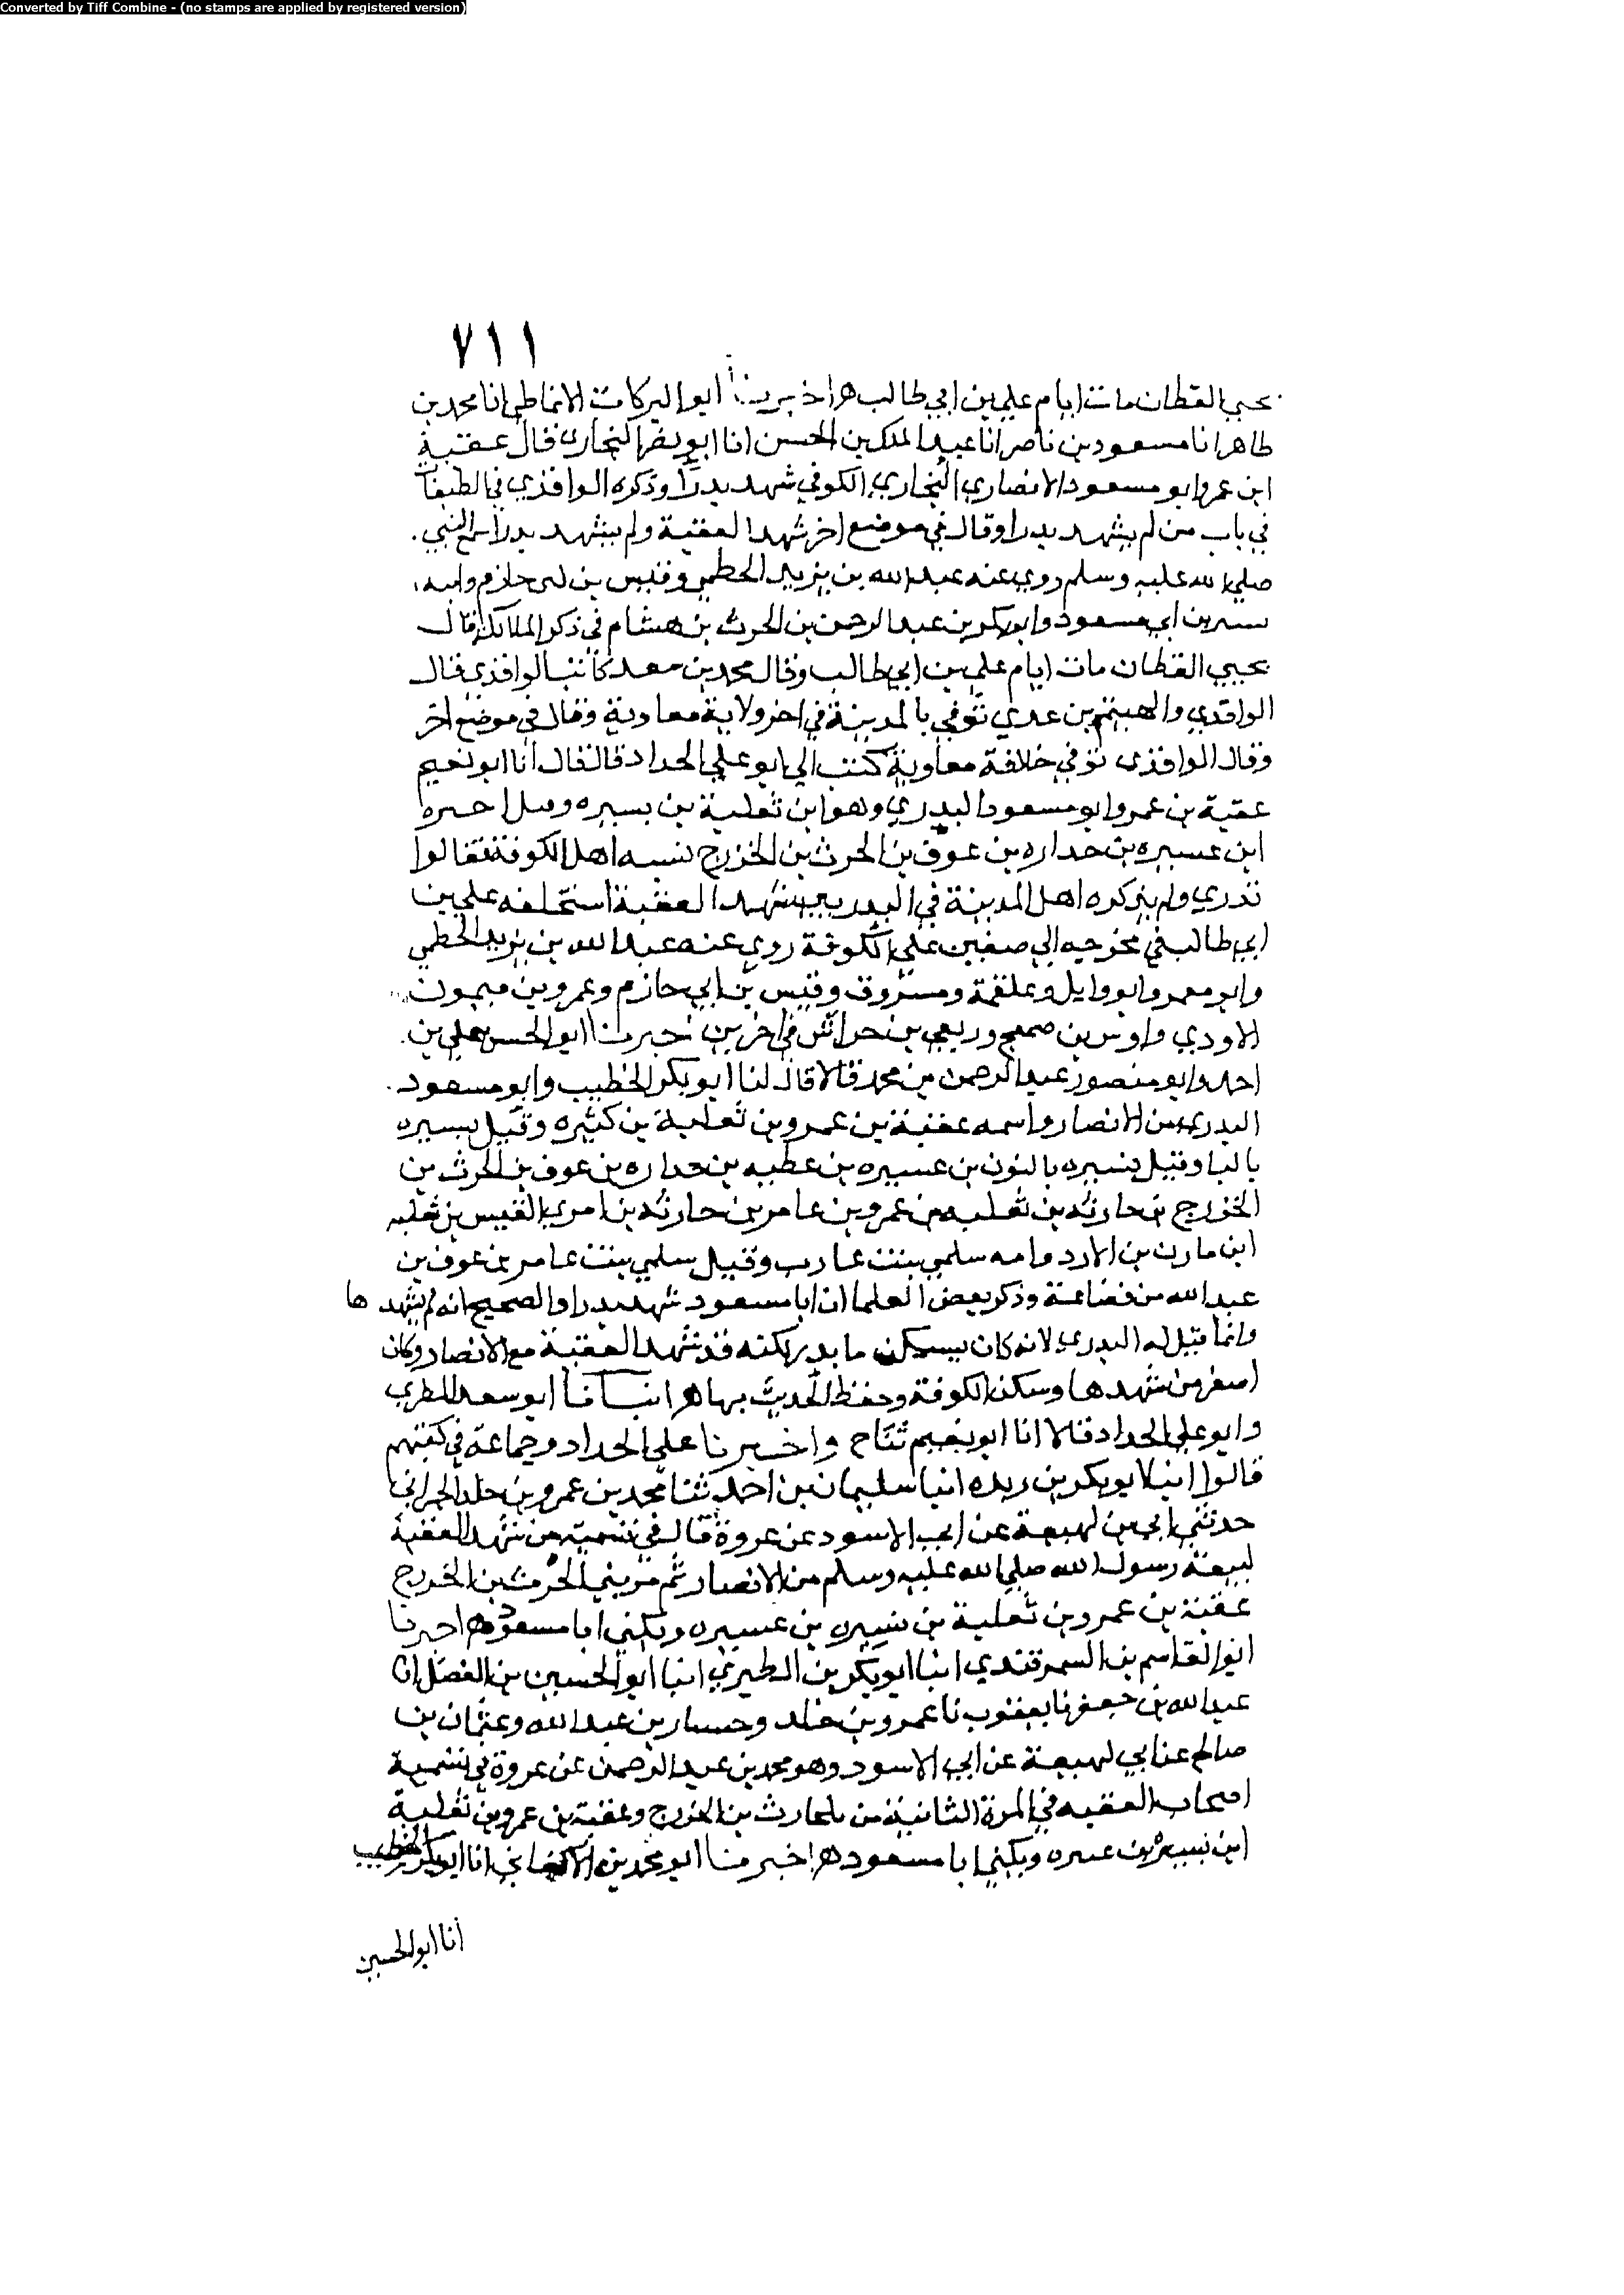 Converted by Tiff Combine - (no stamps are applied by registered version)
٧١١
يحيي القطان مات ايام علي بن ابي طالب ه اخبرنا ابو البركات الانماطي انا محمد بن
طاهر انا مسعود بن ناصر انا عبد الملك بن الحسن انا ابو نصر البخاري قال عقبة
ابن عمرو ابو مسعود الانصاري النجاري الكوفي شهد بدرا وذكره الواقدي في الطبقات
في باب من لم يشهد بدرا وقال في موضع اخر شهد العقبة ولم يشهد بدرا مع النبي
صلي الله عليه وسلم روي عنه عبد الله بن يزيد الخطمي وقيس بن ابي حازم وابنه
بشير بن ابي مسعود وابو بكر بن عبد الرحمن بن الحرث بن هشام في ذكر الملائكة قال
يحيي القطان مات ايام علي بن ابي طالب وقال محمد بن سعد كاتب الواقدي قال
الواقدي والهيثم بن عدي توفي بالمدينة في اخر ولاية معاوية وقال في موضع اخر
وقال الواقدي توفي خلافة معاوية كتب الي ابو علي الحداد قال قال انا ابو نعيم
عقبة بن عمرو ابو مسعود البدري وهو ابن ثعلبة بن يسيره وقيل
ابن عسيره بن جداره بن عوف بن الحرث بن الخزرج نسبه اهل الكوفة فقالوا
بدري ولم يذكره اهل المدينة في البدريين شهد العقبة استخلفه علي بن
ابي طالب في مخرجه الي صفين علي الكوفة روي عنه عبد الله بن يزيد الخطمي
وابو معمر وابو وايل وعلقمة ومسروق وقيس بن ابي حازم وعمرو بن ميمون
الاودي واوس بن ضمعج وربعي بن حراش في اخرين اخبرنا ابو الحسن علي بن
احمد وابو منصور عبد الرحمن بن محمد قالا قال لنا ابو بكر الخطيب وابو مسعود
البدري من الانصار واسمه عقبة بن عمرو بن ثعلبة بن كثيره وقيل يسيره
باليا وقيل نسيره بالنون بن عسيره بن عطيه بن جداره بن عوف بن الحرث بن
الخزرج بن حارثه بن ثعلبه بن عمرو بن عامر بن حارثه بن امري القيس بن ثعلبه
ابن مازن بن الازد وامه سلمي بنت عازب وقيل سلمي بنت عامر بن عوف بن
عبد الله من قضاعة وذكر بعض العلما ان ابا مسعود شهد بدرا والصحيح انه لم يشهدها
وانما قيل له البدري لانه كان يسكن ما بدر لكنه قد شهد العقبة مع الانصار وكان
اصغر من شهدها وسكن الكوفة وحفظ الحديث بها ه انبانا ابو سعد المطرز
وابو علي الحداد قالا انا ابو نعيم ثنا ح واخبرنا علي الحداد وجماعة في كتبهم
قالوا انبا ابو بكر بن ريده انبا سليمان بن احمد ثنا محمد بن عمرو بن خلد الحراني
حدثني ابي بن لهيعة عن ابي الاسود عن عروة قال في تسمية من شهد العقبة
لبيعة رسول الله صلي الله عليه وسلم من الانصار ثم من بني الحرث بن الخزرج
عقبة بن عمرو بن ثعلبة بن نسيره بن عسيره ويكني ابا مسعود ه اخبرنا
ابو القاسم بن السمرقندي انبا ابو بكر بن الطبري انبا ابو الحسين بن الفضل انا
عبد الله بن جعفر نا يعقوب نا عمرو بن خلد وحسان بن عبد الله وعثمان بن
صالح عن ابي لهيعة عن ابي الاسود وهو محمد بن عبد الرحمن عن عروة في تسمية
اصحاب العقبه في المرة الثانية من بلحارث بن الخزرج وعقبة بن عمرو بن ثعلبة
ابن نسيره بن عسره ويكني ابا مسعود ه اخبرنا ابو محمد بن الاكفاني انا ابو بكر الخطيب
انا ابو الحسين